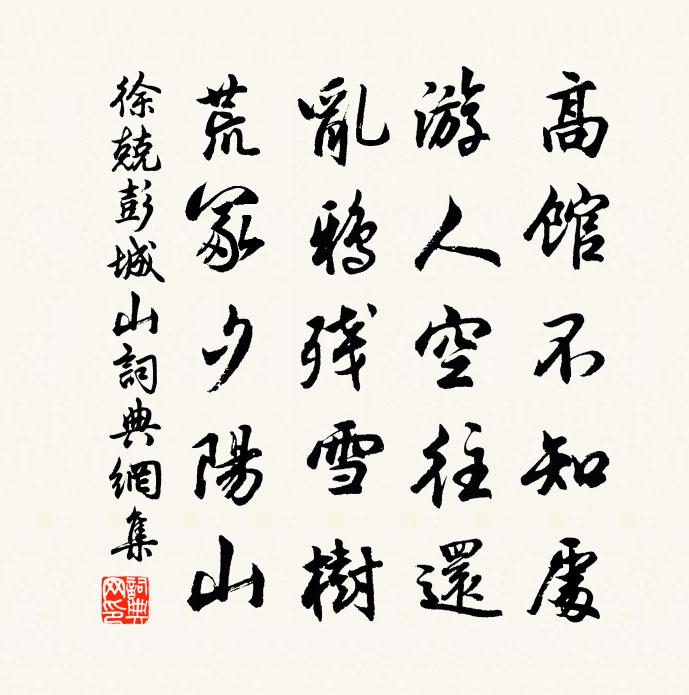 高館不知處
游人空往還
亂鴉残雪樹
荒冢夕陽山
徐兢彭城山詞典網集
詞典
网印